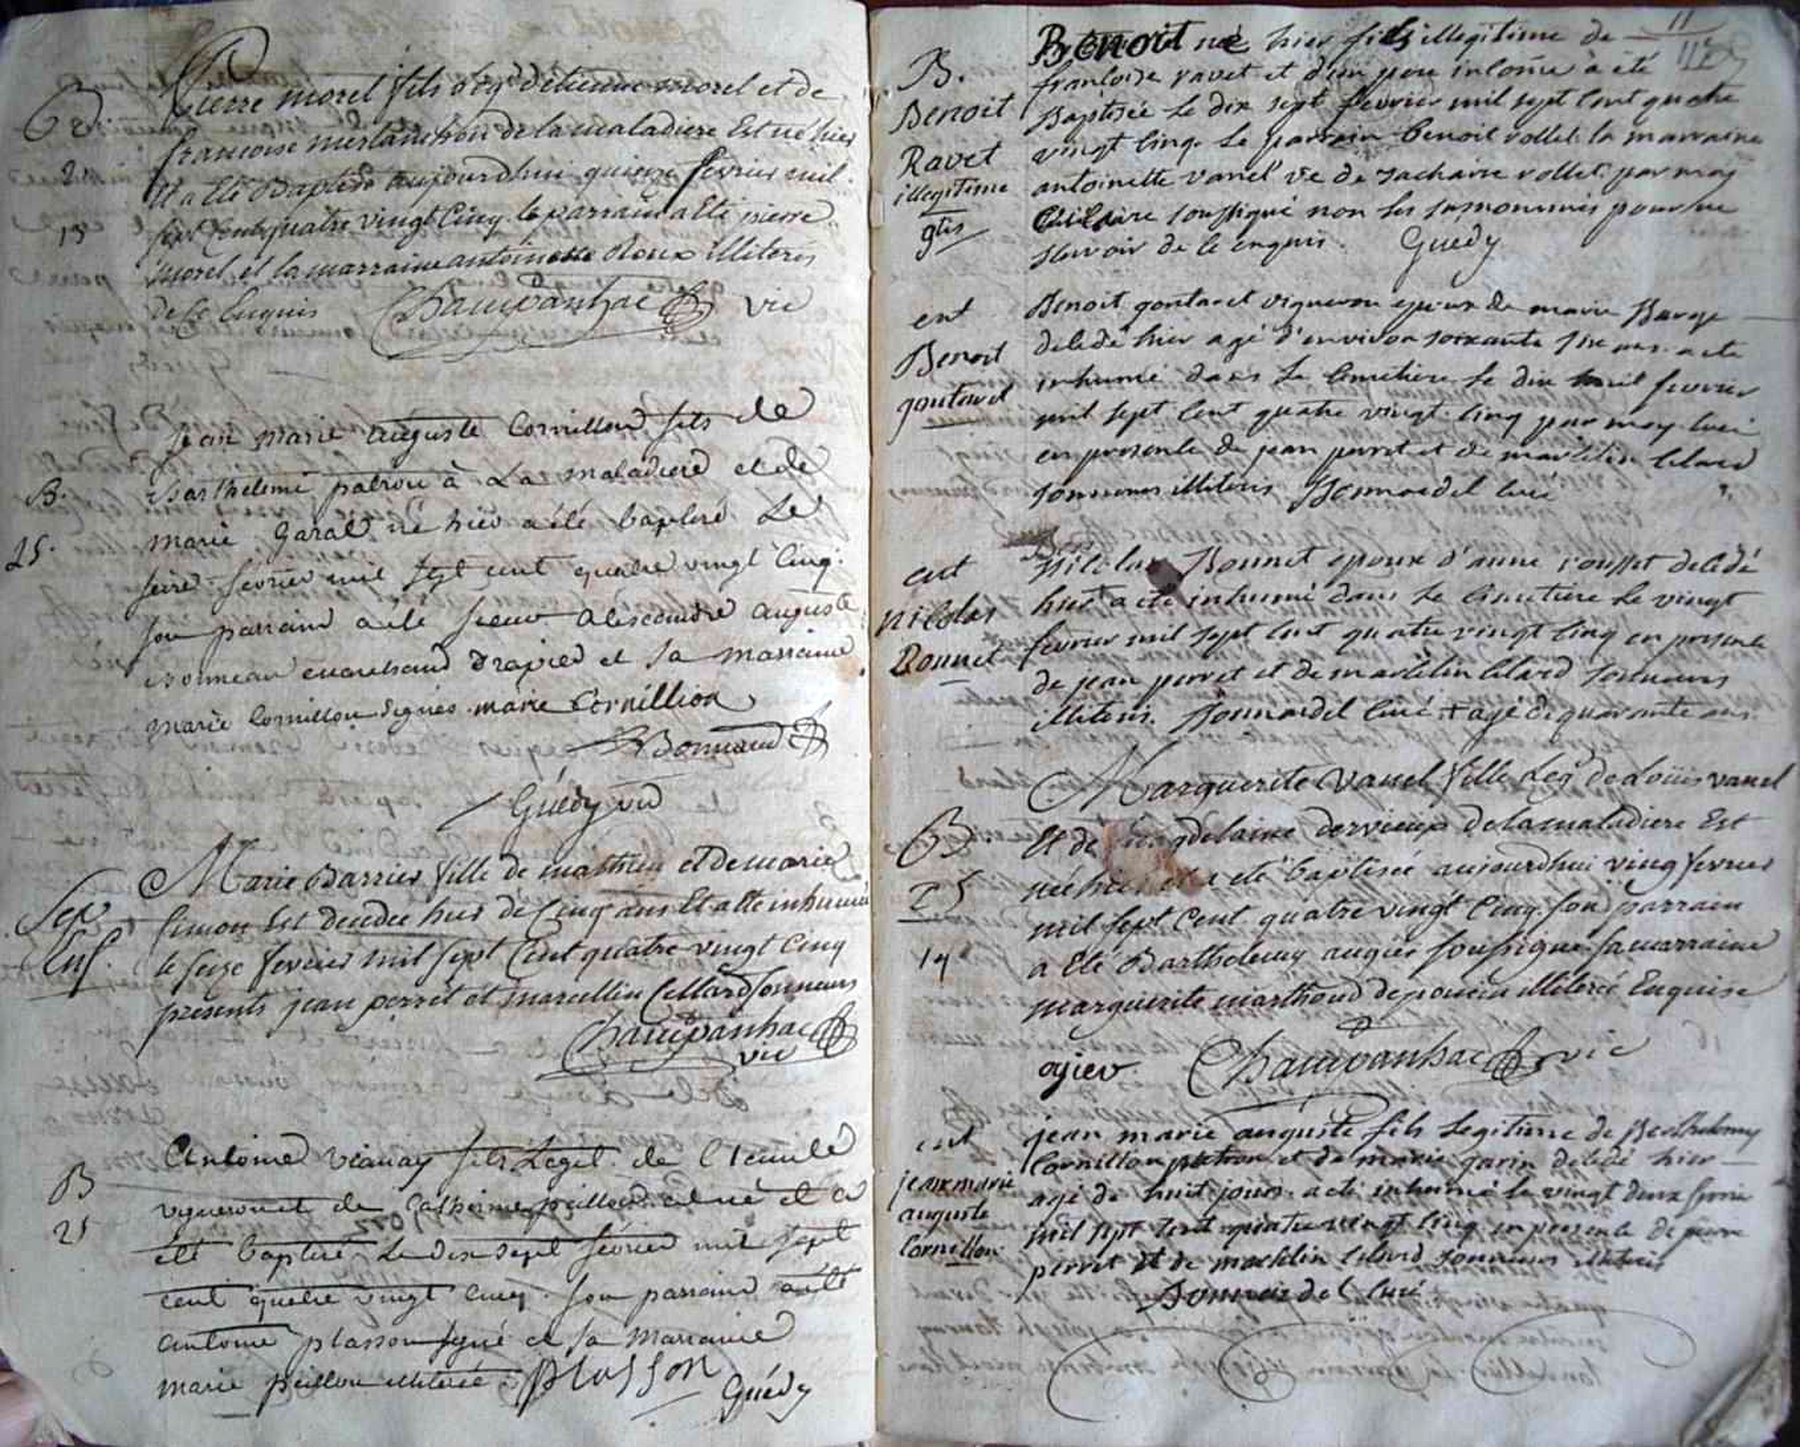 B.
2
15
Pierre morel fils leg d'etienne morel et de
francoise merlanchon de la maladiere Est né hier
Et a été Baptisé aujourdhui quinze fevrier mil
sept Cent quatre vingt Cinq le parrain a Eté pierre
morel et la marraine antoinette Roux illiteres
de ce Enquis Champanhac vic
B.
25.
jean marie auguste Cornillon fils de
Barthelemi patron à La maladiere et de
marie garal né hier a été baptisé Le
seize fevrier mil sept cent quatre vingt cinq.
son parrain a été sieur alexandre auguste
bonneau marchand drapier et sa marraine
marie Cornillon signés. marie Cornillion
Bonnaud
Guedy vic
Sep
Enf.
Marie Barrier fille de mathieu et de marie
Simon Est decedee hier de Cinq ans Et a Eté inhumée
le seize fevrier mil sept Cent quatre vingt Cinq
presents jean perret et marcellin Cellard sonneurs
Champanhac
vic
B
25
Antoine vianay fils Legit. de
vigneron et de Catherine peillon est né et a
été baptisé Le dix sept fevrier mil sept
cent quatre vingt cinq. son parrain a été
antoine plasson signé et sa marraine
marie peillon illiterée. plasson
Guédy
11
B.
Benoit
Ravet
illegitime
gtis
Benoit né hier fils illegitime de
francoise ravet et d'un pere inconu à été
Baptisée le dix sept fevrier mil sept cent quatre
vingt cinq. Le parrain benoit rollet la marraine
antoinette vanel ve de zacharie rollet. par moy
vicaire soussigné non les susnommés pour ne
scavoir de ce enquis. Guedy
ent
Benoit
gontard
Benoit gontard vigneron epoux de marie Barge
decedé hier agé d'environ soixante six ans a eté
inhumé dans le cimetiere le dix huit fevrier
mil sept cent quatre vingt. cinq par moy curé
en presence de jean perret et de marcelin celard
sonneurs illiterés Bonnardel curé
ent
nicolas
Bonnet
Nicolas Bonnet epoux d'anne rousset decedé
hier a eté inhumé dans le cimetiere le vingt
fevrier mil sept cent quatre vingt cinq en presence
de jean perret et de marcelin celard sonneurs
illiterés. Bonnardel curé + agé de quarante ans.
B.
25
19
Marguerite vanel fille Leg de Loüis vanel
Et de magdelaine dervieux de la maladiere Est
née hier et a eté baptisée aujourdhui vingt fevrier
mil sept cent quatre vingt cinq. son parrain
a Eté Barthelemy augier soussigné. sa marraine
marguerite marthoud illiterée Enquise
ogier Champanhac vic
ent
jean marie
auguste
Cornillon
jean marie auguste fils Legitime de Barthelemy
Cornillon patron et de marie garin decedé hier
agé de huit jours. a eté inhumé le vingt deux fevrier
mil sept cent quatre vingt cinq en presence de jean
perret et de marcelin celard sonneurs illiterés
Bonnardel curé